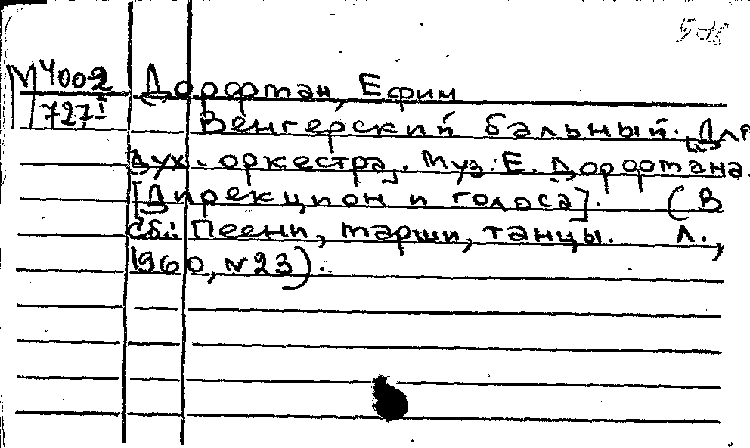 М4002 Дорфман, Ефим
727I Венгерский бальный. Для
дух. оркестра. Муз. Е. Дорфмана.
[Дирекцион и голоса]. (В
сб.: Песни, марши, танцы. Л.,
1960, №23).